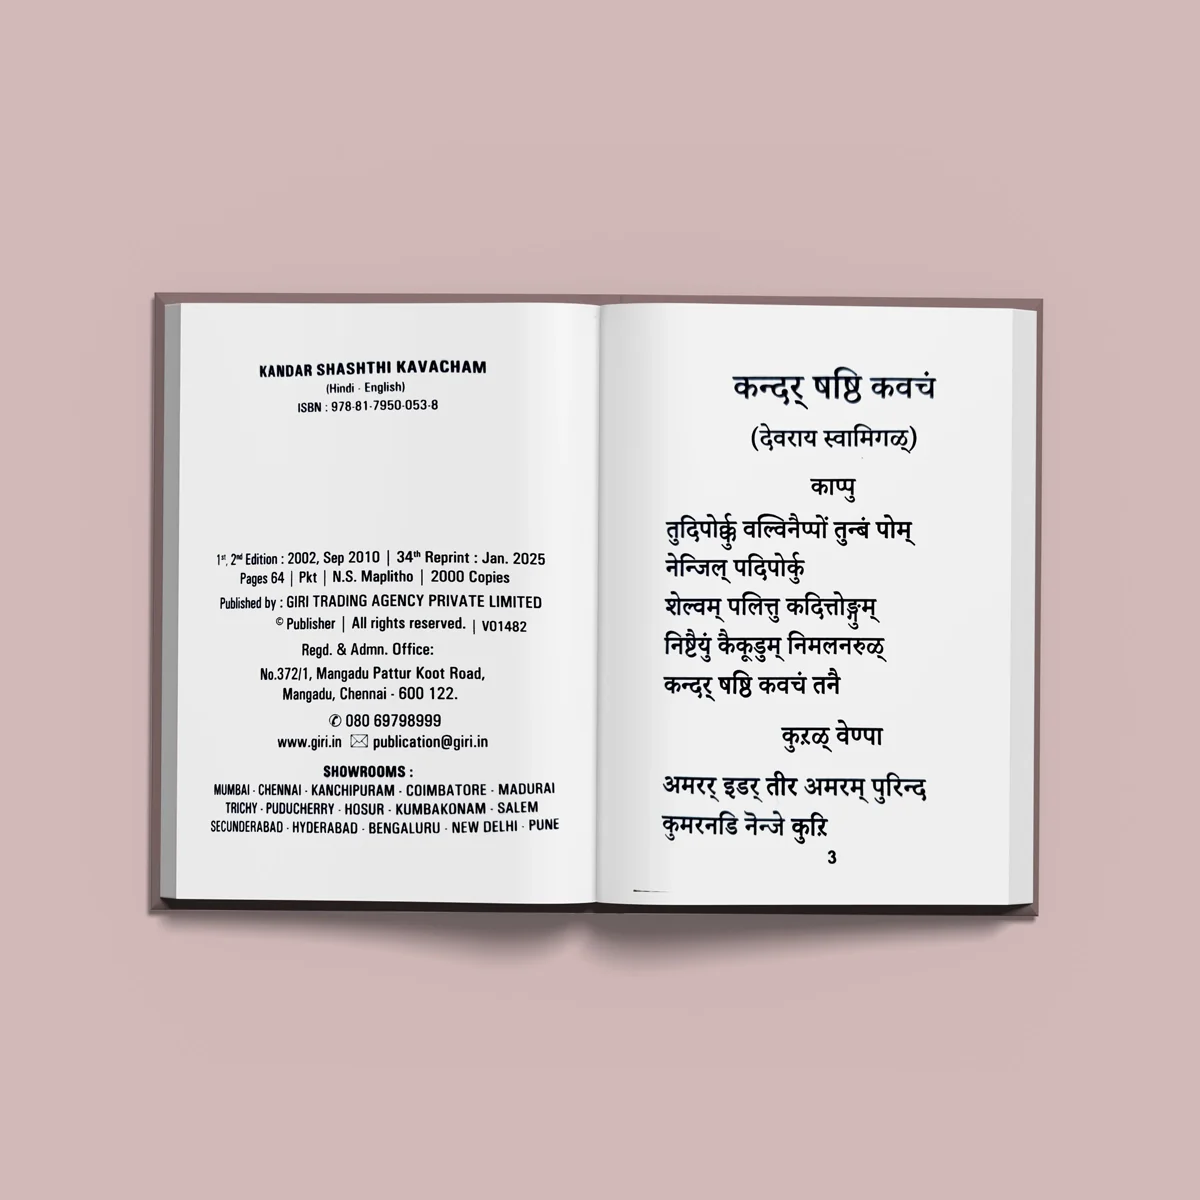 KANDAR SHASHTHI KAVACHAM
(Hindi - English)
ISBN : 978-81-7950-053-8
1st, 2nd Edition : 2002, Sep 2010 | 34th Reprint : Jan. 2025
Pages 64 | Pkt | N.S. Maplitho | 2000 Copies
Published by : GIRI TRADING AGENCY PRIVATE LIMITED
© Publisher | All rights reserved. | VO1482
Regd. & Admn. Office:
No.372/1, Mangadu Pattur Koot Road,
Mangadu, Chennai - 600 122.
✆ 080 69798999
www.giri.in ✉ publication@giri.in
SHOWROOMS :
MUMBAI · CHENNAI · KANCHIPURAM · COIMBATORE · MADURAI
TRICHY · PUDUCHERRY · HOSUR · KUMBAKONAM · SALEM
SECUNDERABAD · HYDERABAD · BENGALURU · NEW DELHI · PUNE
कन्दर् षष्ठि कवचं
(देवराय स्वामिगळ्)
काप्पु
तुदिपोर्क्कु वल्विनैप्पों तुन्बं पोम्
नेन्जिल् पदिपोर्कु
शेल्वम् पलित्तु कदित्तोङ्गुम्
निष्टैयुं कैकूडुम् निमलनरुळ्
कन्दर् षष्ठि कवचं तनै
कुऱळ् वेण्पा
अमरर् इडर् तीर अमरम् पुरिन्द
कुमरनडि नॆन्जे कुऱि
3